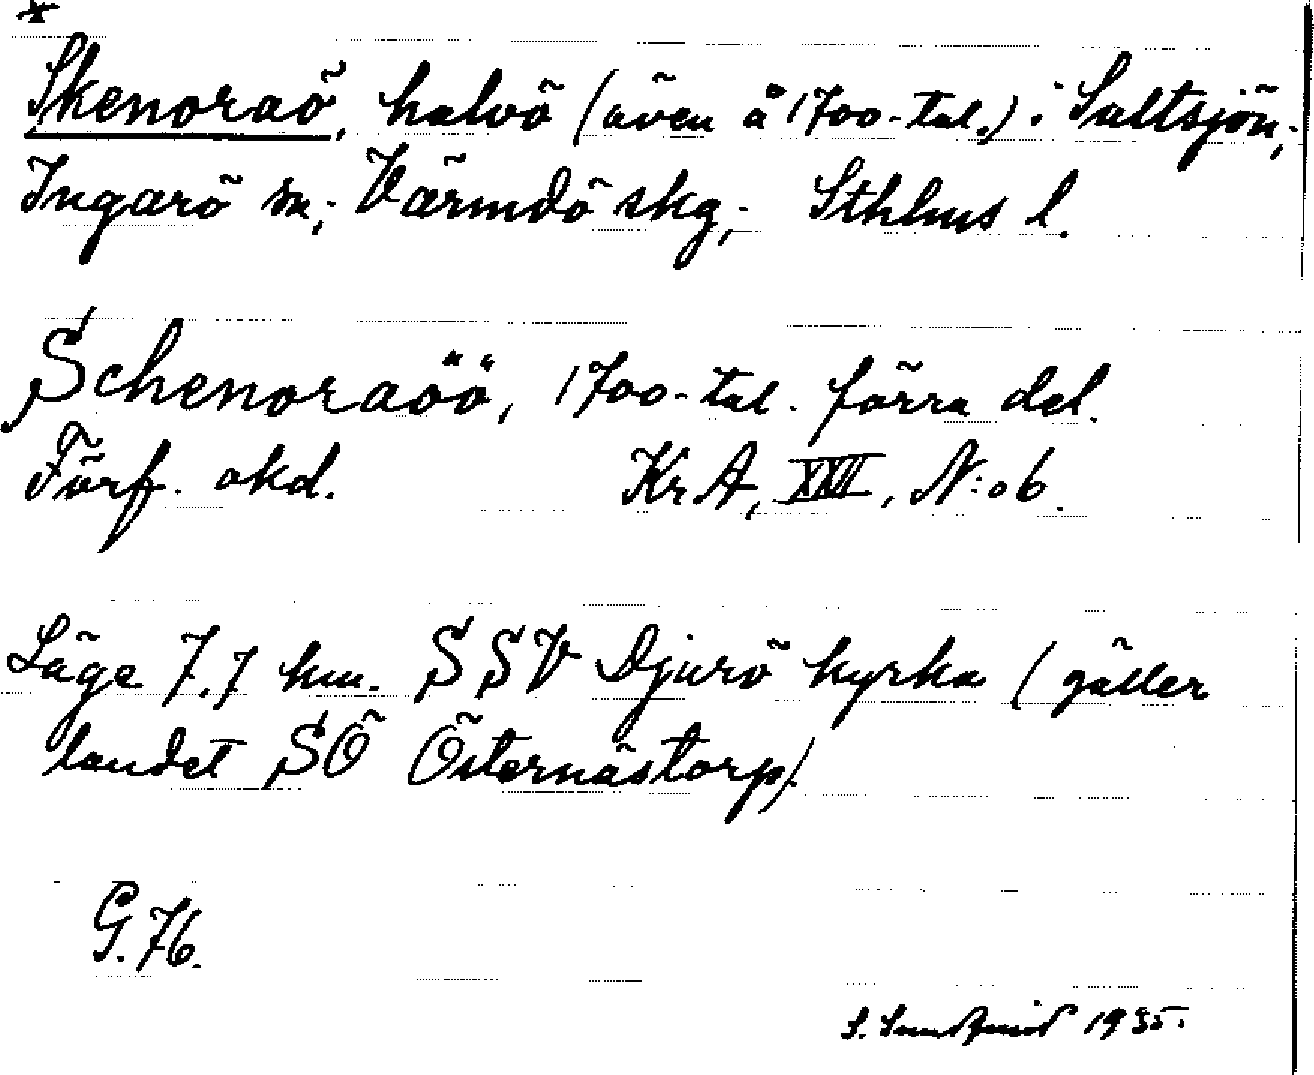 *
Skenoraö, halvö (även å 1700-tal.) i Saltsjön,
Ingarö sn; Värmdö skg; Sthlms l.
Schenoraöö, 1700-tal. förra del.
Förf. okd. Kr A, XXII, N:o 6.
Läge 7,7 km. SSV Djurö kyrka (gäller
landet SÖ Östernästorp).
G. 76.
S. Sundqvist 1935.